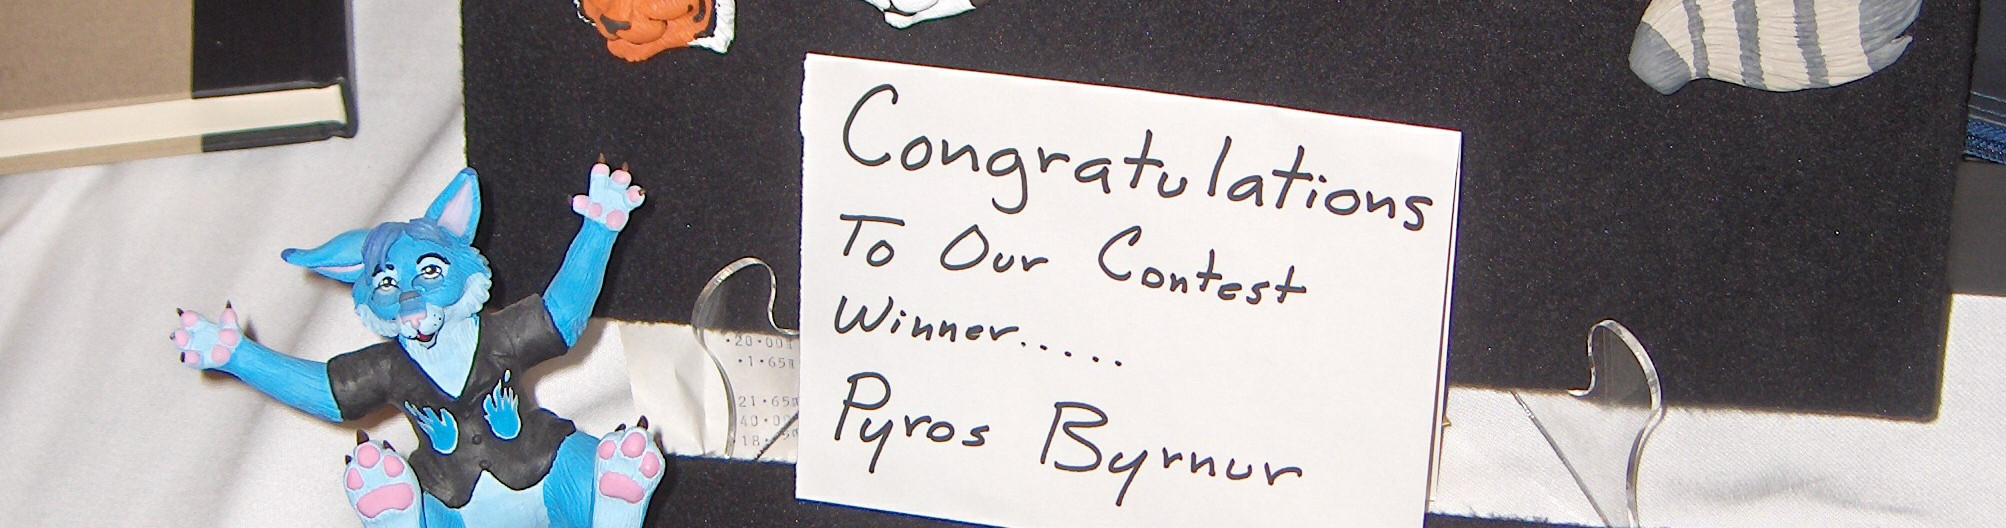 Congratulations
To Our Contest
Winner.....
Pyros Byrnur
•20•00
•1•65
21•65
40•0
18•